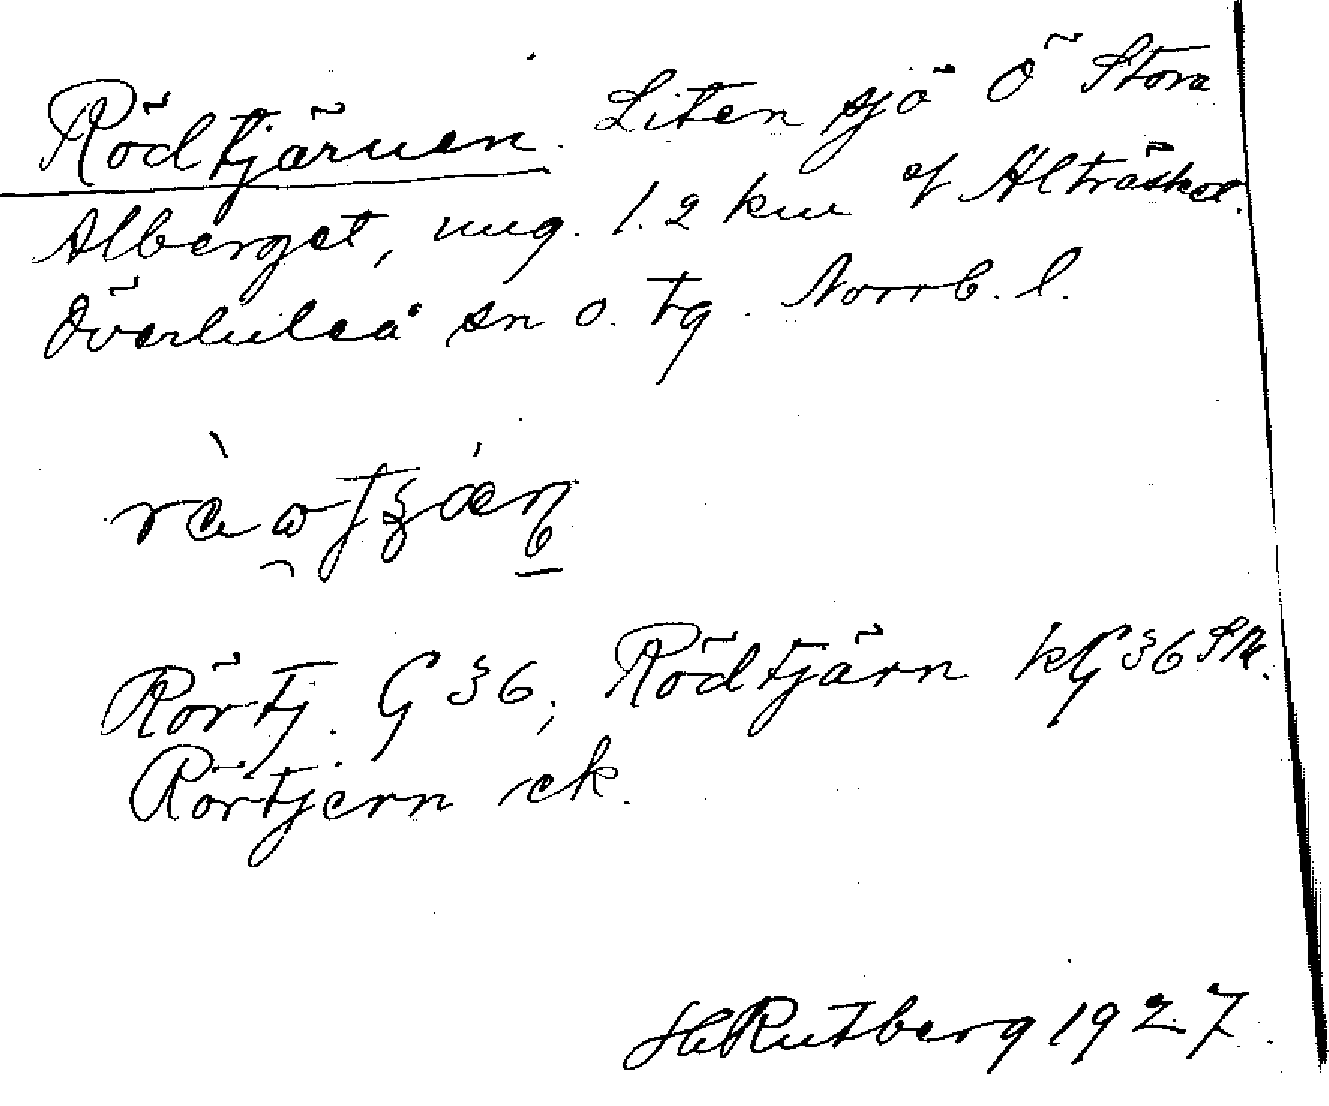 Rödtjärnen. Liten sjö Ö Stora
Alberget, ung. 1.2 km af Alträsket.
Överluleå sn o. tg. Norrb. l.
Rörtj. G 36; Rödtjärn kG 36 SV.
Rörtjern ek.
H Rutberg 1927.